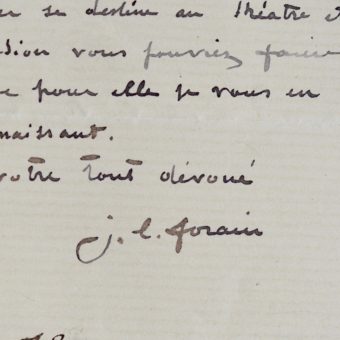 se destine au théâtre
vous pouviez faire
pour elle je vous en
naissant.
votre tout dévoué
j. l. forain